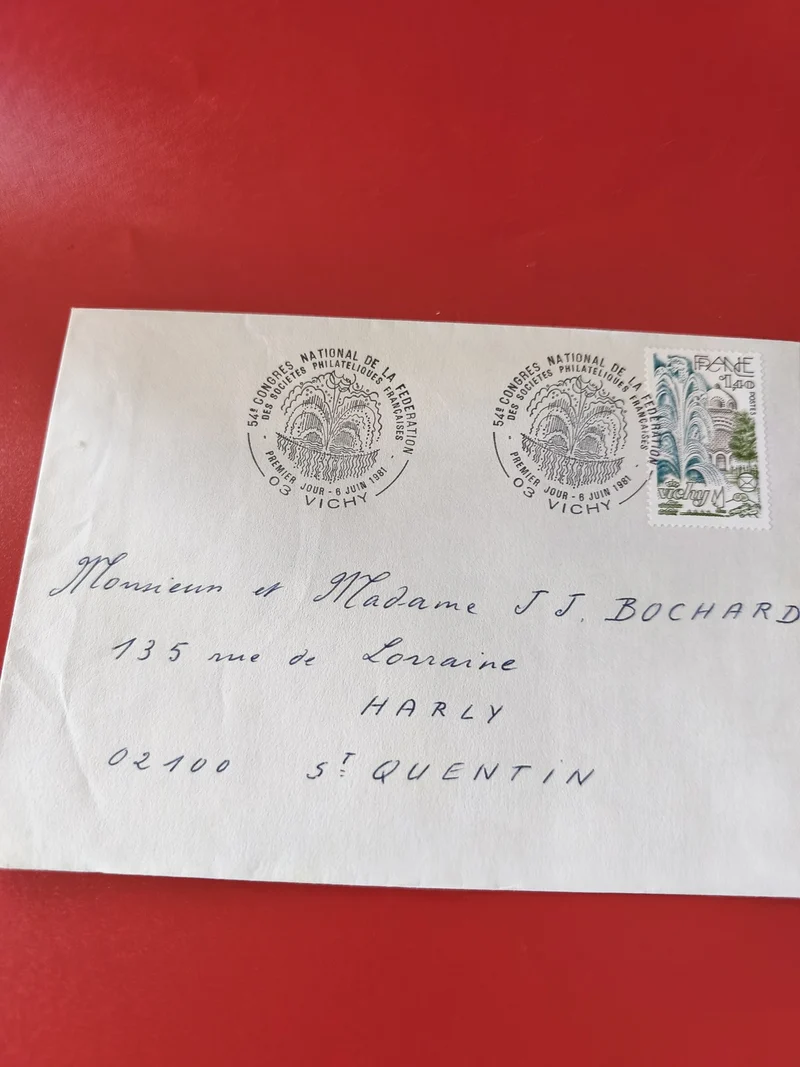 54e CONGRES NATIONAL DE LA FEDERATION
DES SOCIETES PHILATELIQUES FRANÇAISES
PREMIER JOUR - 6 JUIN 1981
03 VICHY
54e CONGRES NATIONAL DE LA FEDERATION
DES SOCIETES PHILATELIQUES FRANÇAISES
PREMIER JOUR - 6 JUIN 1981
03 VICHY
FRANCE
1,40
POSTES
vichy
Monsieur et Madame J J. BOCHARD
135 rue de Lorraine
HARLY
02100 ST QUENTIN